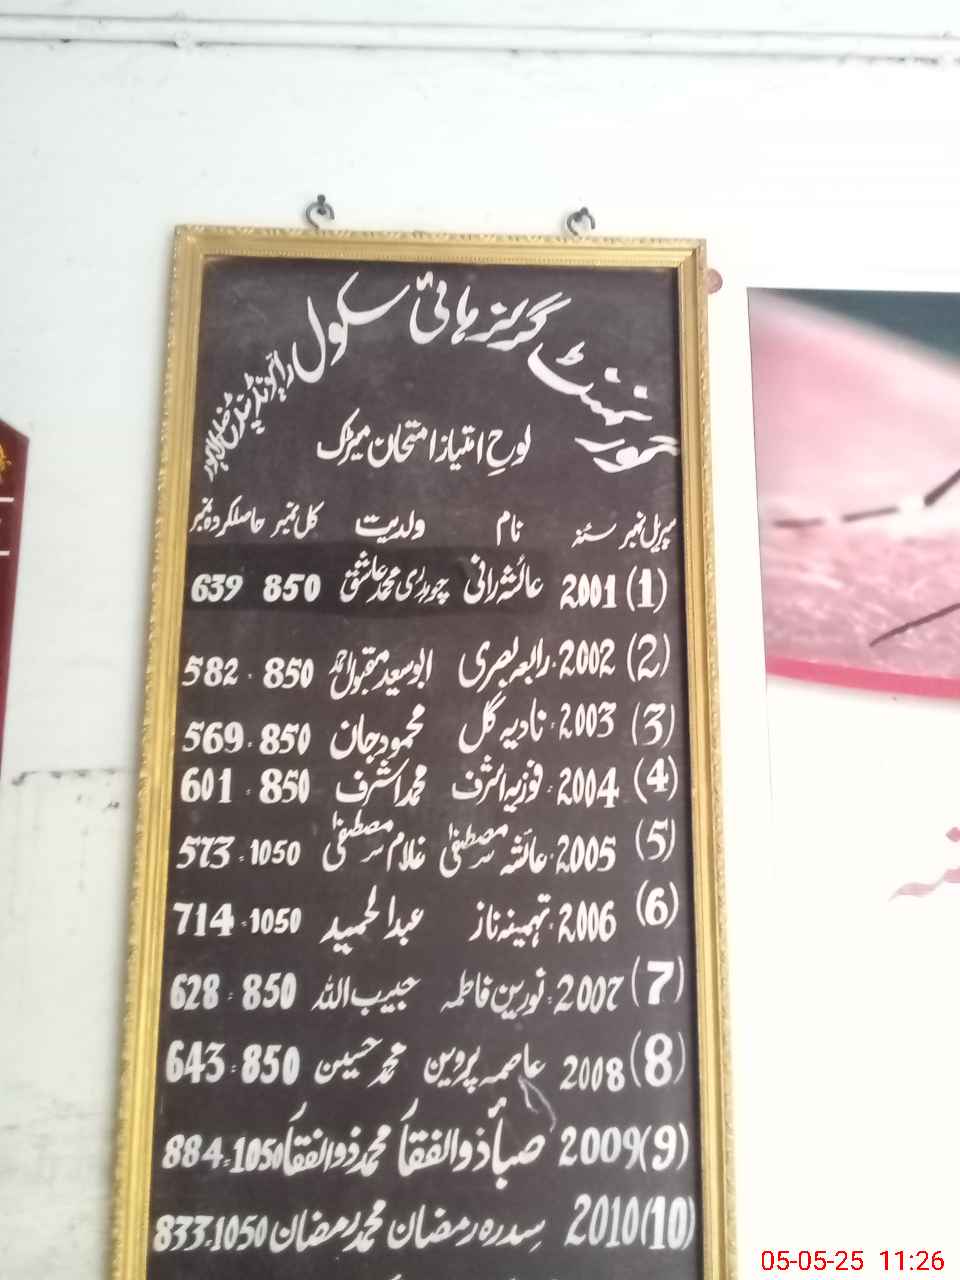 گورنمنٹ گرلز ہائی سکول رائیونڈ
لوحِ امتیاز امتحان میٹرک
سیریل نمبر سنہ نام ولدیت کل نمبر حاصلکردہ نمبر
(1) 2001 عائشہ رانی چوہدری محمد عاشق 850 639
(2) 2002 رابعہ بصری ابو سعید مقبول احمد 850 582
(3) 2003 نادیہ گل محمود جان 850 569
(4) 2004 فوزیہ اشرف محمد اشرف 850 601
(5) 2005 عائشہ مصطفیٰ غلام مصطفیٰ 1050 573
(6) 2006 تہمینہ ناز عبدالحمید 1050 714
(7) 2007 نورین فاطمہ حبیب اللہ 850 628
(8) 2008 عاصمہ پروین محمد حسین 850 643
(9) 2009 صبا ذوالفقار محمد ذوالفقار 1050 884
(10) 2010 سدرہ رمضان محمد رمضان 1050 833
05-05-25 11:26